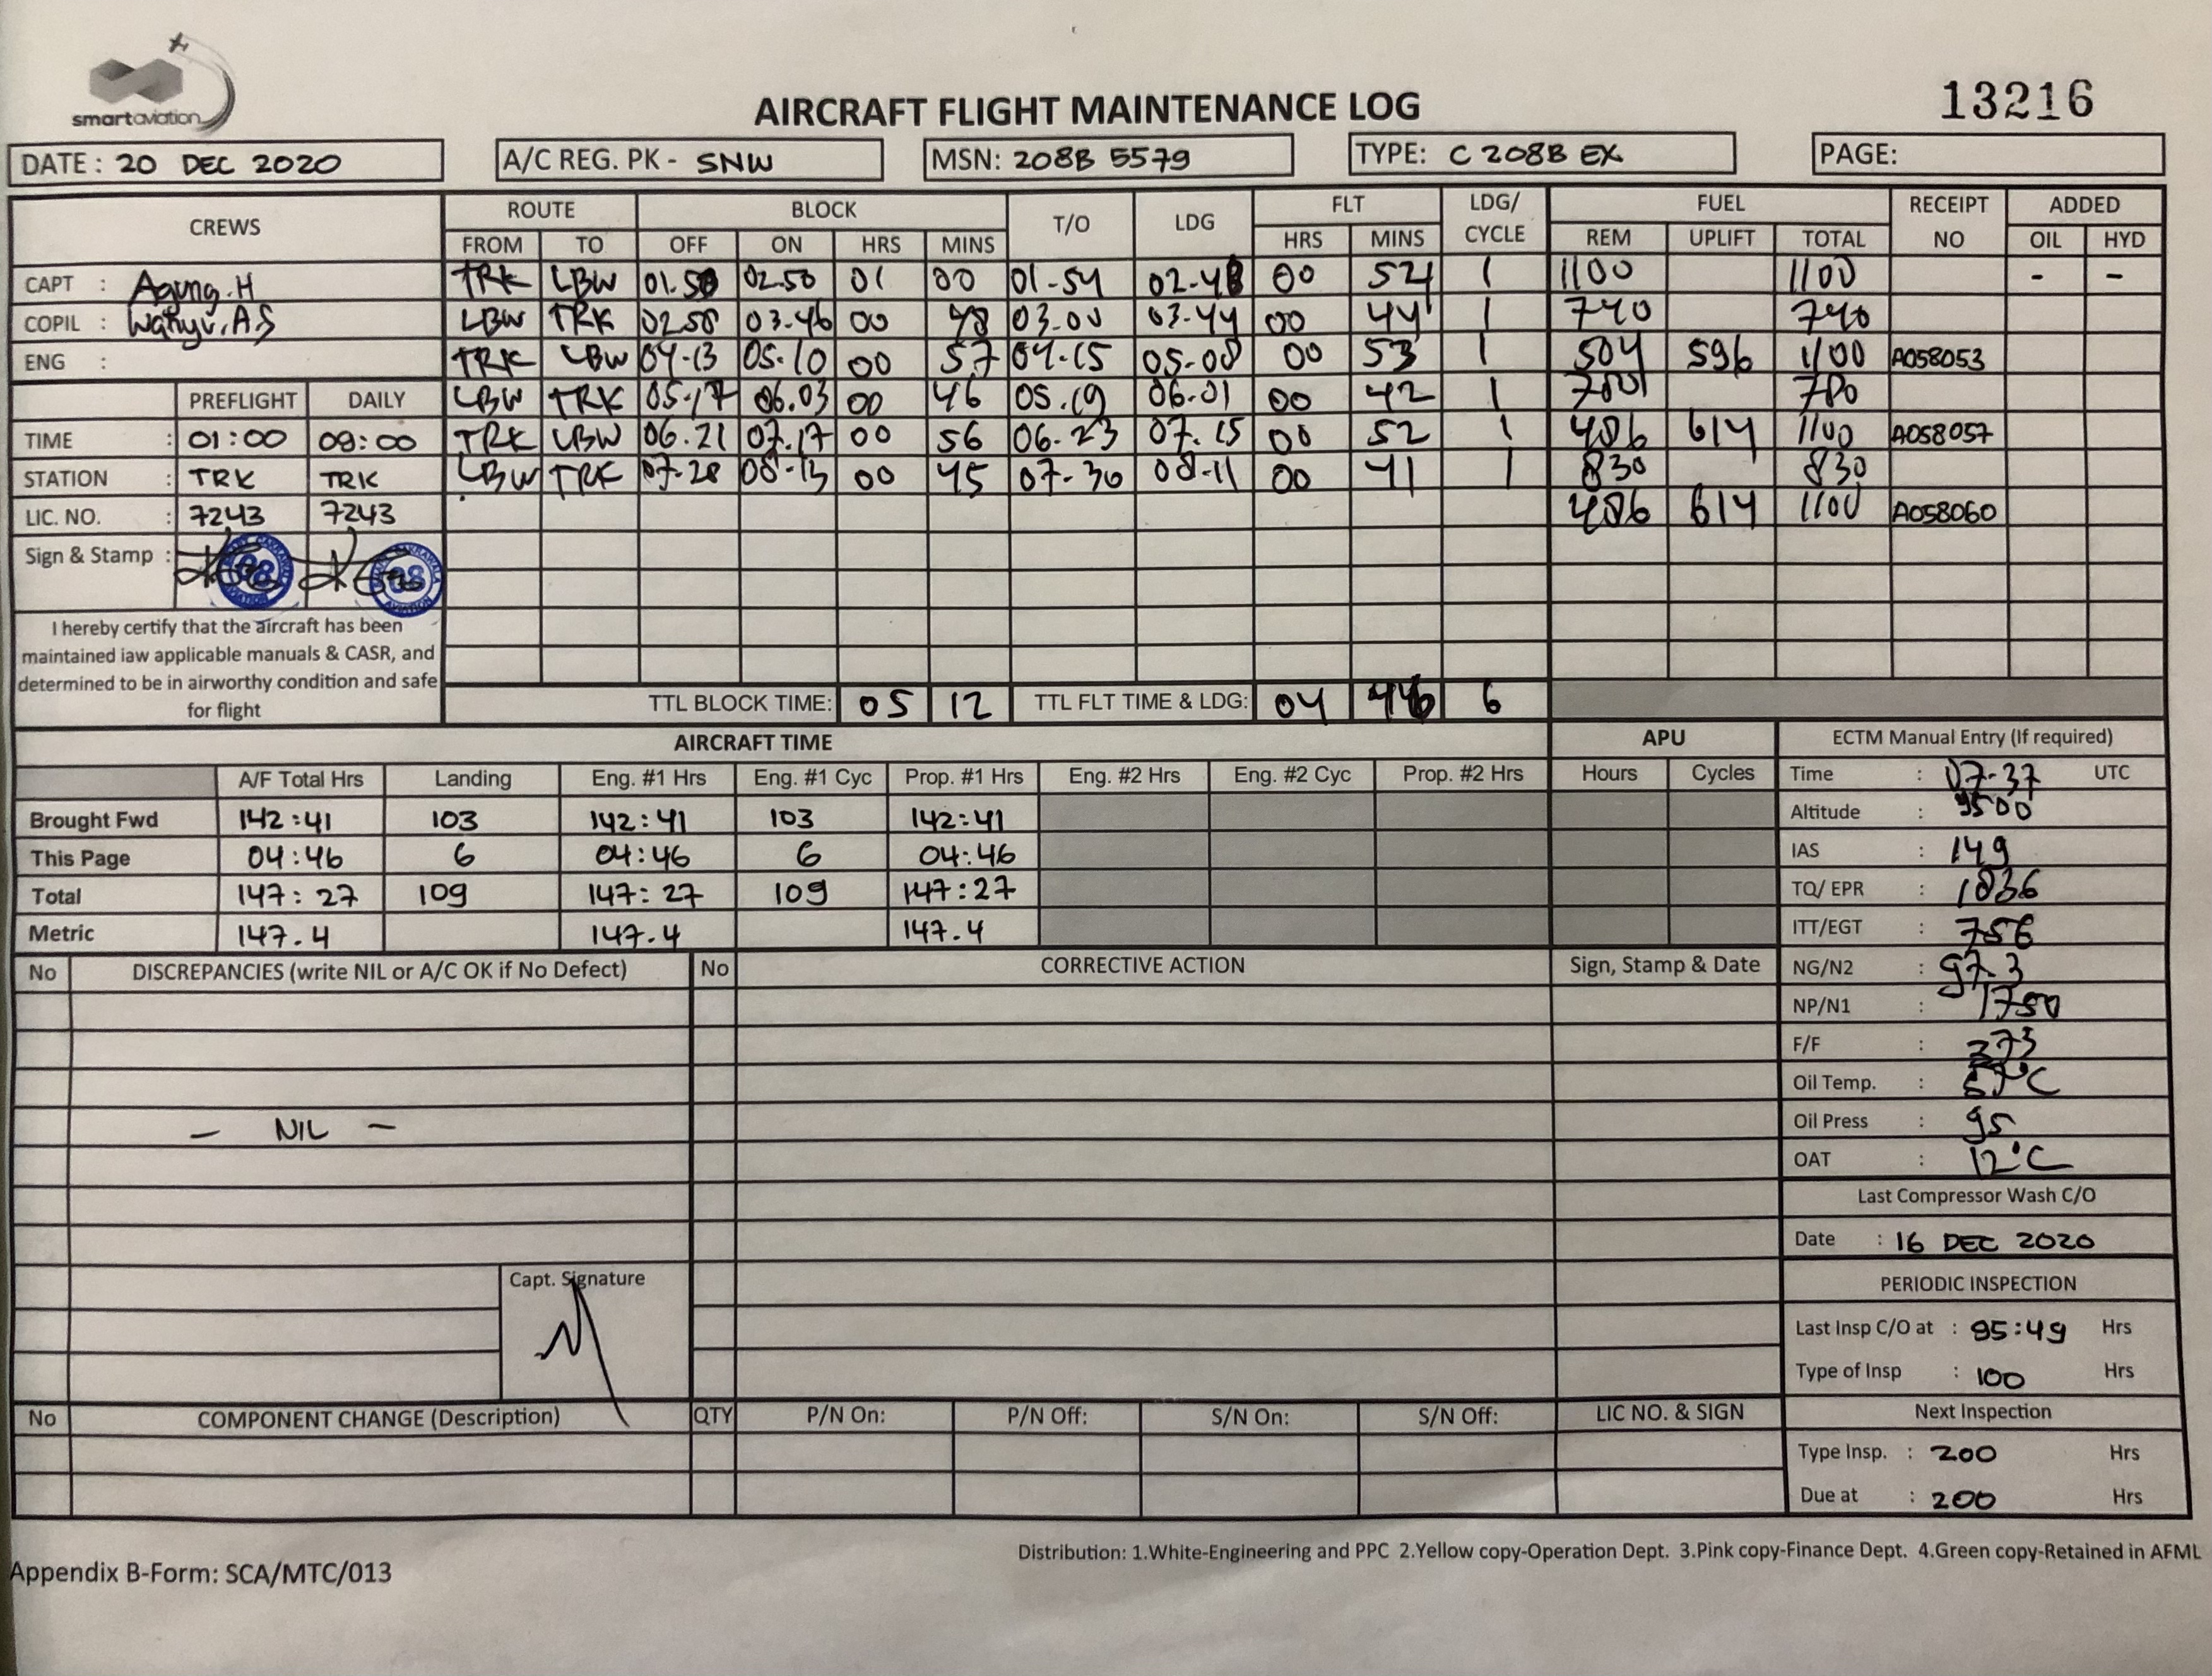 smartaviation
AIRCRAFT FLIGHT MAINTENANCE LOG
13216
DATE : 20 DEC 2020
A/C REG. PK - SNW
MSN: 208B 5579
TYPE: C 208B EX
PAGE:
CREWS ROUTE BLOCK T/O LDG FLT LDG/ CYCLE FUEL RECEIPT NO ADDED
FROM TO OFF ON HRS MINS HRS MINS REM UPLIFT TOTAL OIL HYD
CAPT : Agung.H TRK LBW 01.50 02.50 01 00 01-54 02-48 00 54 1 1100 1100 - -
COPIL : Wahyu.A.S LBW TRK 02.58 03.46 00 48 03.00 03.44 00 44 1 740 740
ENG : TRK LBW 04-13 05.10 00 57 04-15 05-08 00 53 1 504 596 1100 A058053
PREFLIGHT DAILY LBW TRK 05-17 06.03 00 46 05.19 06.01 00 42 1 780 780
TIME : 01:00 09:00 TRK LBW 06.21 07.17 00 56 06-23 07.15 00 52 1 486 614 1100 A058057
STATION : TRK TRK LBW TRK 07-28 08-13 00 45 07-30 08-11 00 41 1 830 830
LIC. NO. : 7243 7243 486 614 1100 A058060
Sign & Stamp :
I hereby certify that the aircraft has been
maintained iaw applicable manuals & CASR, and
determined to be in airworthy condition and safe
for flight
TTL BLOCK TIME: 05 12 TTL FLT TIME & LDG: 04 46 6
AIRCRAFT TIME APU
A/F Total Hrs Landing Eng. #1 Hrs Eng. #1 Cyc Prop. #1 Hrs Eng. #2 Hrs Eng. #2 Cyc Prop. #2 Hrs Hours Cycles
Brought Fwd 142:41 103 142:41 103 142:41
This Page 04:46 6 04:46 6 04:46
Total 147:27 109 147:27 109 147:27
Metric 147.4 147.4 147.4
ECTM Manual Entry (If required)
Time : 07-37 UTC
Altitude : 9500
IAS : 149
TQ/ EPR : 1836
ITT/EGT : 756
NG/N2 : 97.3
NP/N1 : 1750
F/F : 373
Oil Temp. : °C
Oil Press : 95
OAT : 12°C
Last Compressor Wash C/O
Date : 16 DEC 2020
PERIODIC INSPECTION
Last Insp C/O at : 95:49 Hrs
Type of Insp : 100 Hrs
Next Inspection
Type Insp. : 200 Hrs
Due at : 200 Hrs
No DISCREPANCIES (write NIL or A/C OK if No Defect) No CORRECTIVE ACTION Sign, Stamp & Date
— NIL —
Capt. Signature
No COMPONENT CHANGE (Description) QTY P/N On: P/N Off: S/N On: S/N Off: LIC NO. & SIGN
Distribution: 1.White-Engineering and PPC 2.Yellow copy-Operation Dept. 3.Pink copy-Finance Dept. 4.Green copy-Retained in AFML
Appendix B-Form: SCA/MTC/013